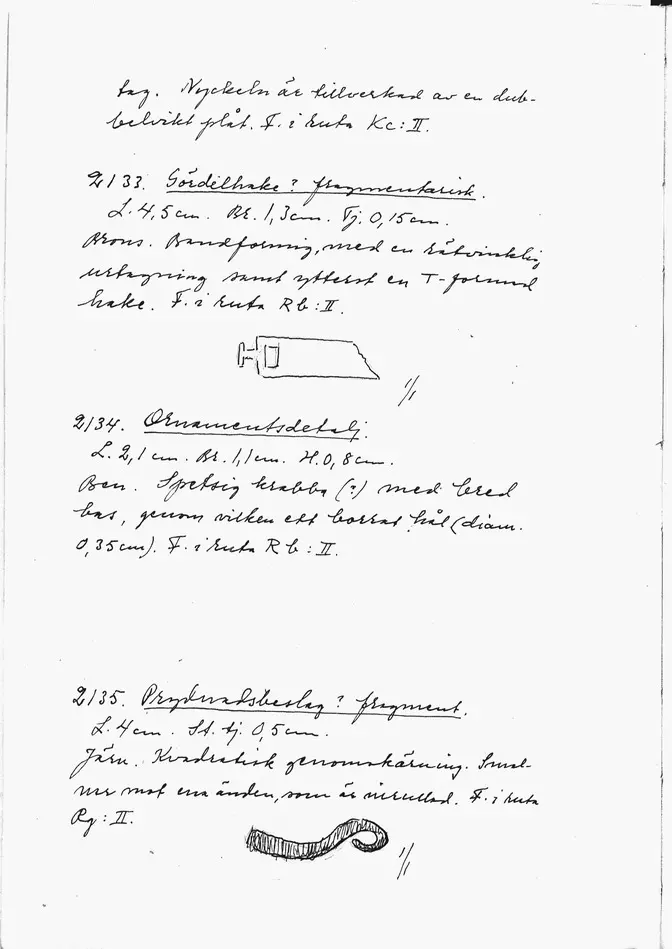 tag. Nyckeln är tillverkad av en dub-
belvikt plåt. F. i ruta Kc: II.
2133. Gördelhake? fragmentarisk.
L. 4,5 cm. Br. 1,3 cm. Tj. 0,15 cm.
Brons. Bandformig, med en rätvinklig
urtagning samt ytterst en T-formad
hake. F. i ruta Rb: II.
1/1
2134. Ornamentsdetalj.
L. 2,1 cm. Br. 1,1 cm. H. 0,8 cm.
Ben. Spetsig krabba (?) med bred
bas, genom vilken ett borrat hål (diam.
0,35 cm). F. i ruta Rb: II.
2135. Prydnadsbeslag? fragment.
L. 4 cm. St. tj. 0,5 cm.
Järn. Kvadratisk genomskärning. Smal-
nar mot ena änden, som är inrullad. F. i ruta
Rg: II.
1/1